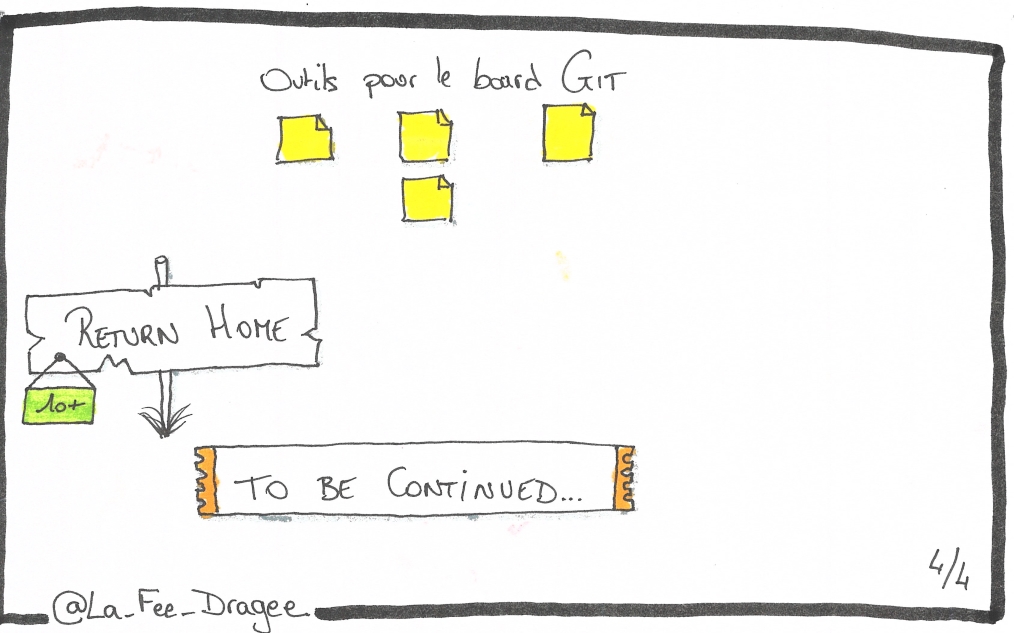 Outils pour le board GIT
RETURN HOME
10+
TO BE CONTINUED...
4/4
@La_Fee_Dragee